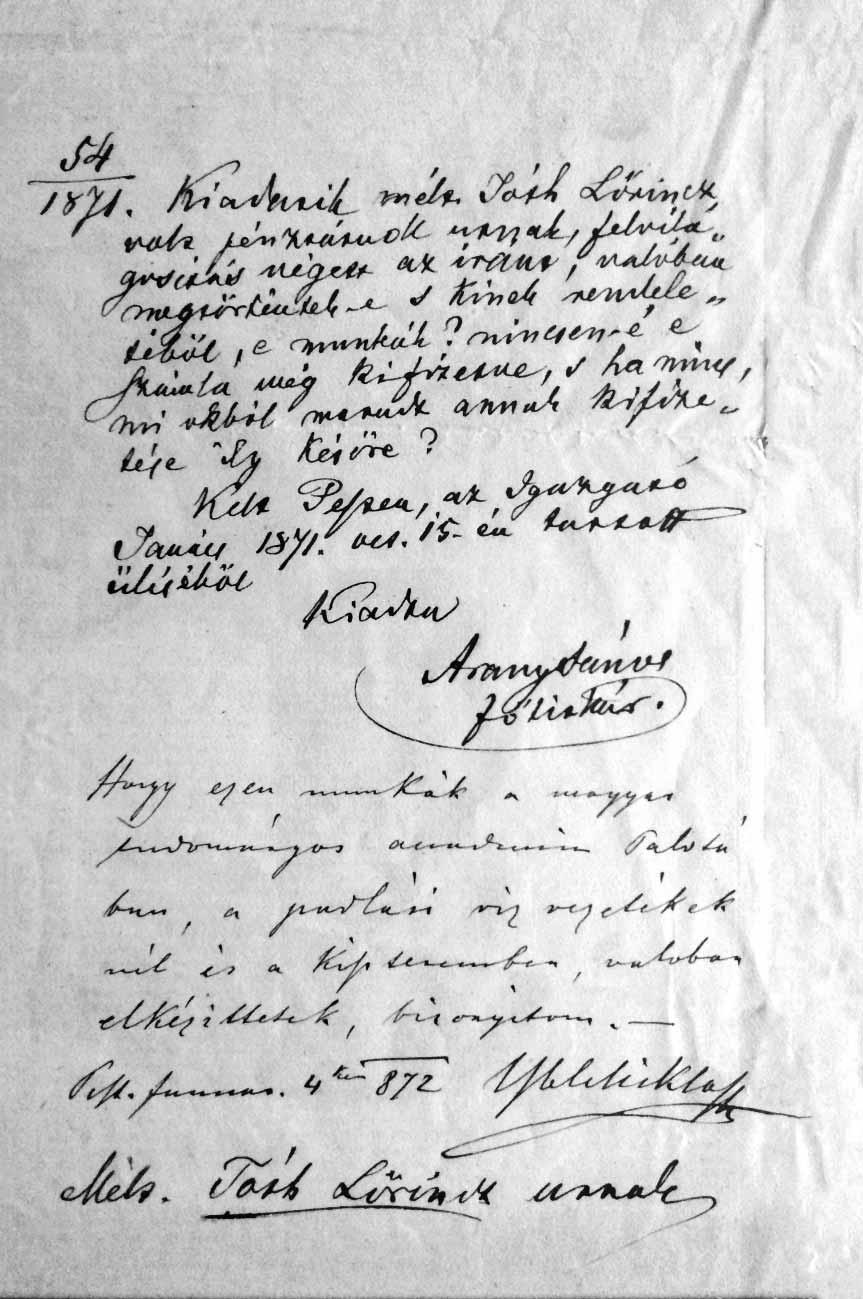 54
1871. Kiadatik mélt. Tóth Lőrincz,
vált. pénztárnok urnak, felvilá„
gosítás végett az iránt, valóban
megtörténtek-e s kinek rendele„
téből, e munkák? nincsen-é e
számla még kifizetve, s ha nincs,
mi okból maradt annak kifize„
tése így későre?
Kelt Pesten, az Igazgató
Tanács 1871. oct. 15-én tartott
üléséből
Kiadta
Arany János
főtitkár.
Hogy ezen munkák a magyar
tudományos academia Palotá
ban, a padlási viz vezetékek
nél és a Képteremben, valoban
elkészittettek, bizonyitom. —
Pest. Januar. 4 ken 872 Ybl Miklós
Mélt. Tóth Lőrincz urnak